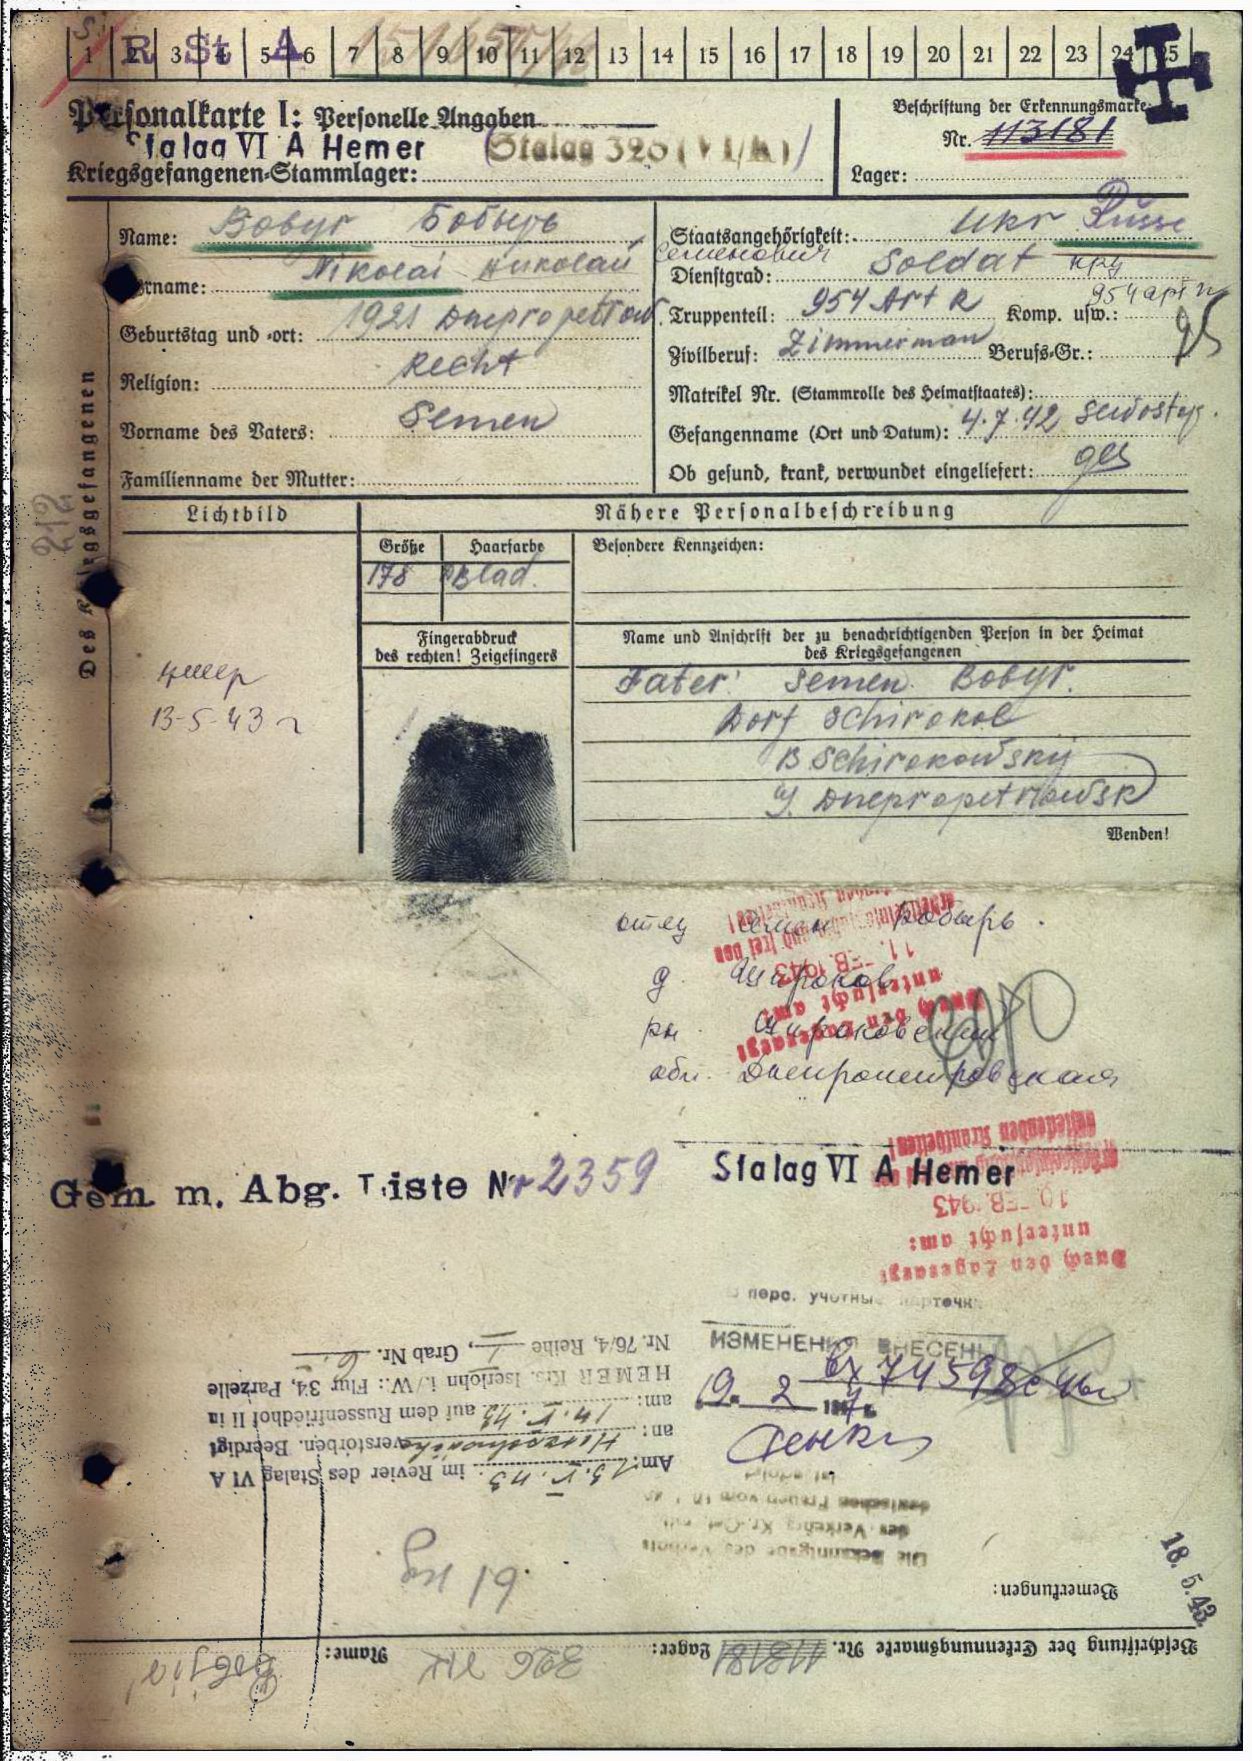 R St A
1 2 3 4 5 6 7 8 9 10 11 12 13 14 15 16 17 18 19 20 21 22 23 24 25
Personalkarte I: Personelle Angaben
Stalag VI A Hemer (Stalag 326 (VI/K))
Kriegsgefangenen-Stammlager:
Beschriftung der Erkennungsmarke
Nr. 113181
Lager:
Des Kriegsgefangenen
Name: Bobyr Бобырь
Vorname: Nikolai Николай Семенович
Geburtstag und -ort: 1921 Dnepropetrow.
Religion: Recht
Vorname des Vaters: Semen
Familienname der Mutter:
Staatsangehörigkeit: Ukr Russe
Dienstgrad: Soldat кра
Truppenteil: 954 Art R Komp. usw.: 954 арт п
Zivilberuf: Zimmerman Berufs-Gr.:
Matrikel Nr. (Stammrolle des Heimatstaates):
Gefangenname (Ort und Datum): 4.7.42 Sewostop.
Ob gesund, krank, verwundet eingeliefert: ges
212
Lichtbild
Nähere Personalbeschreibung
Größe Haarfarbe Besondere Kennzeichen:
178 Blad.
Fingerabdruck
des rechten! Zeigefingers
Name und Anschrift der zu benachrichtigenden Person in der Heimat
des Kriegsgefangenen
Fater: Semen Bobyr.
Dorf Schirokol
R Schirokowsky
G. Dnepropetrowsk
Wenden!
умер
13-5-43 г
отец Семен Бобырь.
д. Широков
рн. Широковский
обл. Днепропетровская
Durch den Lagerarzt
untersucht am:
11. FEB. 1943
und frei von
Gem. m. Abg. Liste Nr 2359
Stalag VI A Hemer
Durch den Lagerarzt
untersucht am:
10. FEB. 1943
ansteckenden Krankheiten!
В перс. учетные карточки
ИЗМЕНЕНИЯ ВНЕСЕНЫ
вх 74598
19. 2 194
Am: 13.V.43. im Revier des Stalag VI A
an: verstorben. Beerdigt
am: 14.V.43. auf dem Russenfriedhof II in
HEMER Krs. Iserlohn i./W.: Flur 34, Parzelle
Nr. 76/4, Reihe I, Grab Nr. 6.
Die Bekanntgabe des Verbots
des Verkehrs Kr.-Gef. mit
deutschen Frauen vom
ist erfolgt
61 kg
18. 5. 43.
Bemerkungen:
Beschriftung der Erkennungsmarke Nr. 113181 Lager: 326 VIK Name: